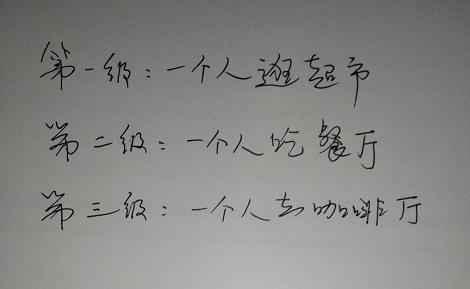 第一级：一个人逛超市
第二级：一个人吃餐厅
第三级：一个人去咖啡厅